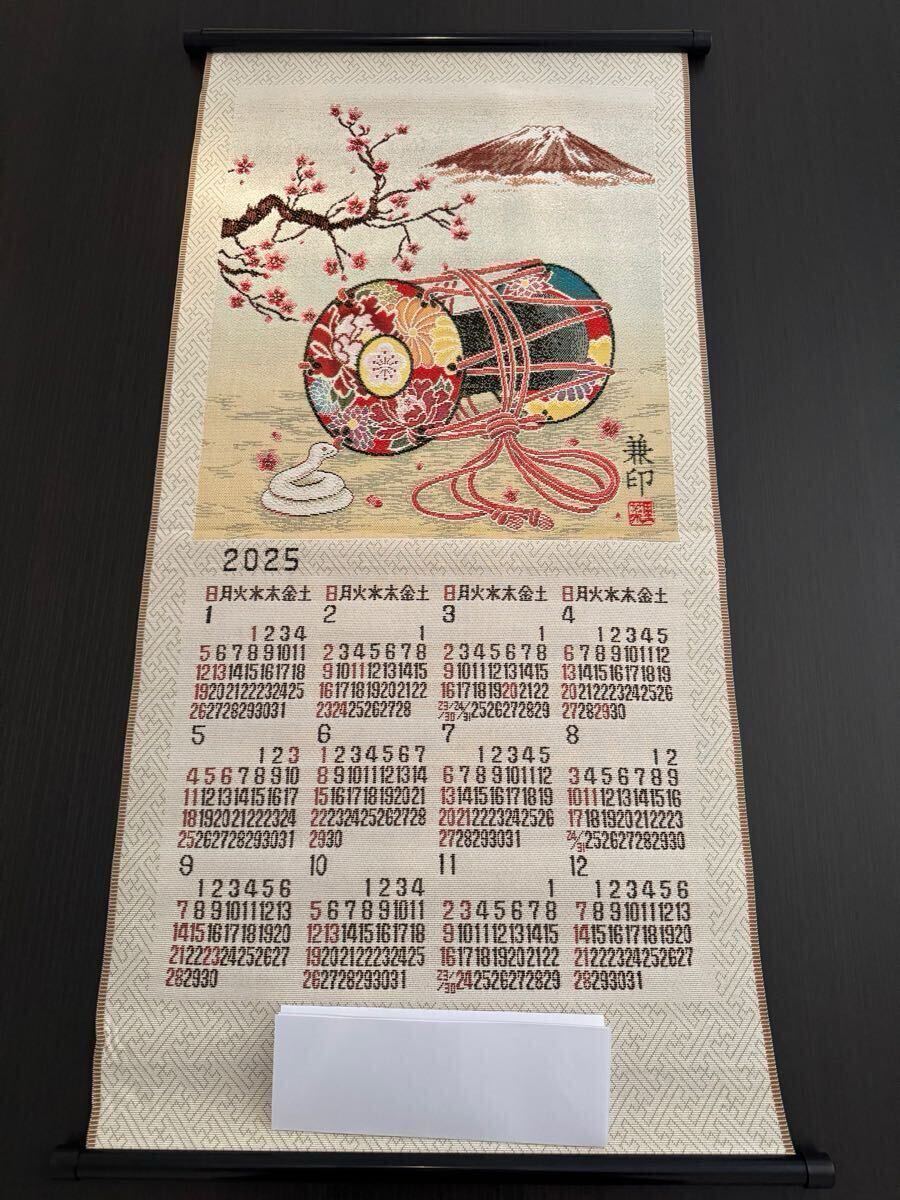 兼印
2025
日月火水木金土
1
1 2 3 4
5 6 7 8 9 10 11
12 13 14 15 16 17 18
19 20 21 22 23 24 25
26 27 28 29 30 31
日月火水木金土
2
1
2 3 4 5 6 7 8
9 10 11 12 13 14 15
16 17 18 19 20 21 22
23 24 25 26 27 28
日月火水木金土
3
1
2 3 4 5 6 7 8
9 10 11 12 13 14 15
16 17 18 19 20 21 22
23/30 24/31 25 26 27 28 29
日月火水木金土
4
1 2 3 4 5
6 7 8 9 10 11 12
13 14 15 16 17 18 19
20 21 22 23 24 25 26
27 28 29 30
5
1 2 3
4 5 6 7 8 9 10
11 12 13 14 15 16 17
18 19 20 21 22 23 24
25 26 27 28 29 30 31
6
1 2 3 4 5 6 7
8 9 10 11 12 13 14
15 16 17 18 19 20 21
22 23 24 25 26 27 28
29 30
7
1 2 3 4 5
6 7 8 9 10 11 12
13 14 15 16 17 18 19
20 21 22 23 24 25 26
27 28 29 30 31
8
1 2
3 4 5 6 7 8 9
10 11 12 13 14 15 16
17 18 19 20 21 22 23
24/31 25 26 27 28 29 30
9
1 2 3 4 5 6
7 8 9 10 11 12 13
14 15 16 17 18 19 20
21 22 23 24 25 26 27
28 29 30
10
1 2 3 4
5 6 7 8 9 10 11
12 13 14 15 16 17 18
19 20 21 22 23 24 25
26 27 28 29 30 31
11
1
2 3 4 5 6 7 8
9 10 11 12 13 14 15
16 17 18 19 20 21 22
23/30 24 25 26 27 28 29
12
1 2 3 4 5 6
7 8 9 10 11 12 13
14 15 16 17 18 19 20
21 22 23 24 25 26 27
28 29 30 31